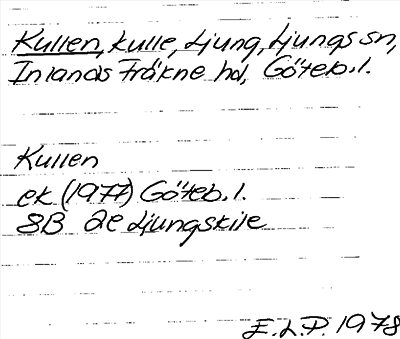 Kullen, kulle, Ljung, Ljungs sn,
Inlands Fräkne hd, Göteb. l.
Kullen
ek (1977) Göteb. l.
8B 2e Ljungskile
E.L.P. 1978